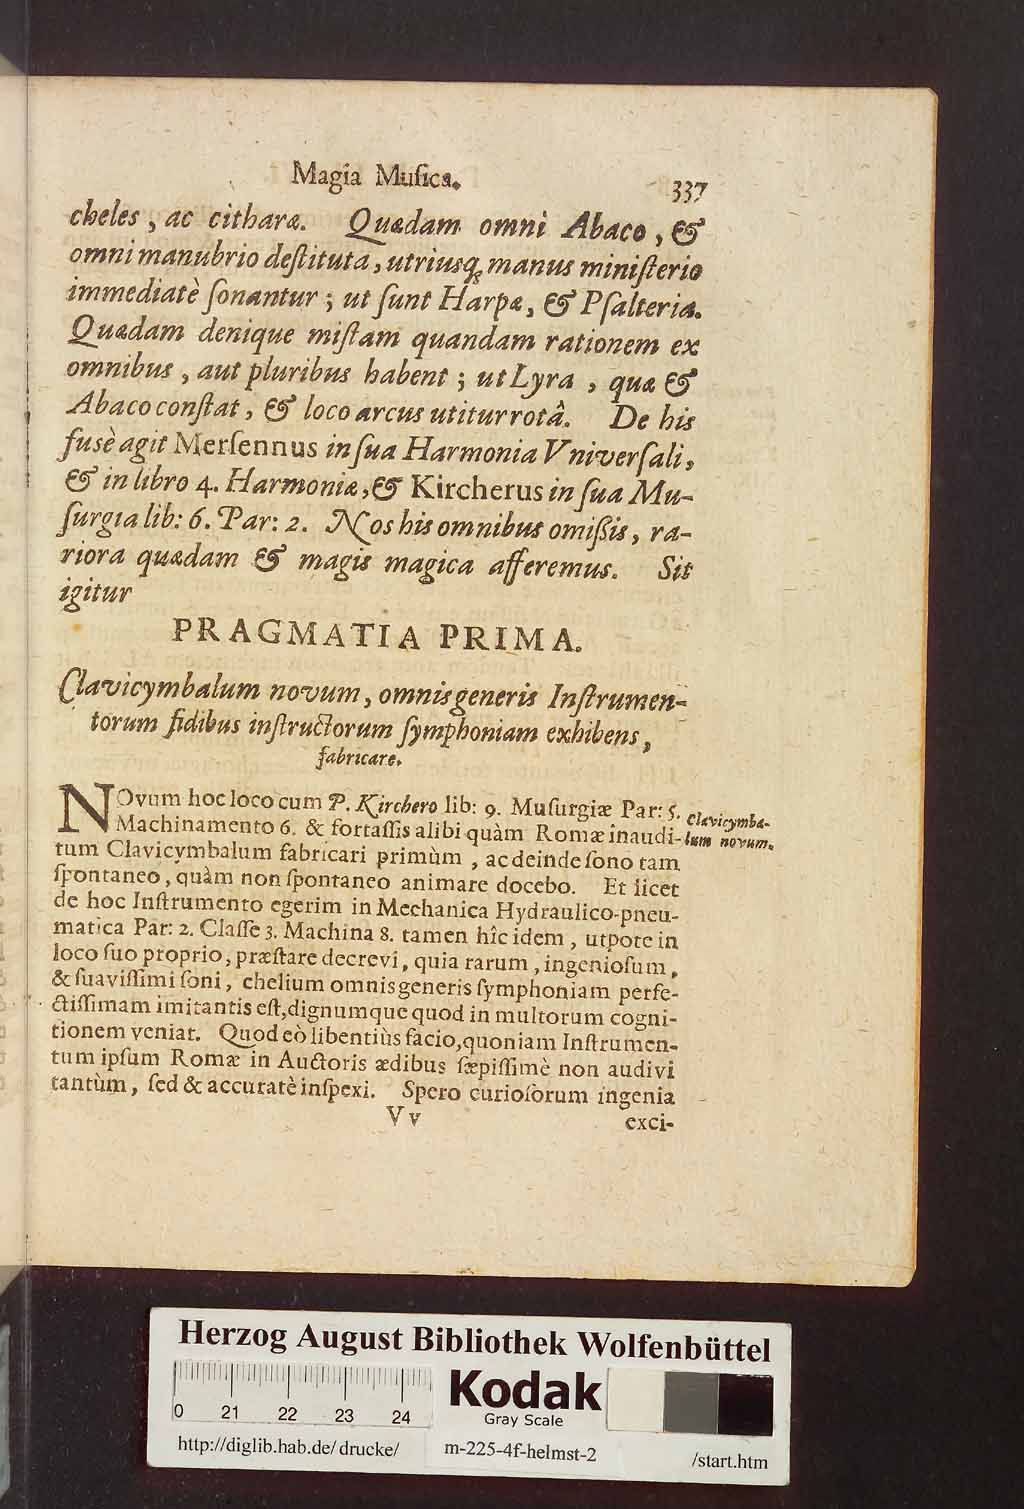 Magia Muſica.
337
cheles, ac citharæ. Quædam omni Abaco, &
omni manubrio deſtituta, utriusq; manus miniſterio
immediatè ſonantur; ut ſunt Harpæ, & Pſalteria.
Quædam denique miſtam quandam rationem ex
omnibus, aut pluribus habent; ut Lyra, quæ &
Abaco conſtat, & loco arcus utitur rotâ. De his
fusè agit Merſennus in ſua Harmonia Vniverſali,
& in libro 4. Harmoniæ, & Kircherus in ſua Mu-
ſurgia lib: 6. Par: 2. Nos his omnibus omißis, ra-
riora quædam & magis magica afferemus. Sit
igitur
PRAGMATIA PRIMA.
Clavicymbalum novum, omnis generis Inſtrumen-
torum fidibus inſtructorum ſymphoniam exhibens,
fabricare.
NOvum hoc loco cum P. Kirchero lib: 9. Muſurgiæ Par: 5.
Machinamento 6. & fortaſſis alibi quàm Romæ inaudi-
tum Clavicymbalum fabricari primùm, ac deinde ſono tam
ſpontaneo, quàm non ſpontaneo animare docebo. Et licet
de hoc Inſtrumento egerim in Mechanica Hydraulico-pneu-
matica Par: 2. Claſſe 3. Machina 8. tamen hîc idem, utpote in
loco ſuo proprio, præſtare decrevi, quia rarum, ingenioſum,
& ſuaviſſimi ſoni, chelium omnis generis ſymphoniam perfe-
ctiſſimam imitantis eſt, dignumque quod in multorum cogni-
tionem veniat. Quod eò libentiùs facio, quoniam Inſtrumen-
tum ipſum Romæ in Auctoris ædibus ſæpiſſimè non audivi
tantùm, ſed & accuratè inſpexi. Spero curioſorum ingenia
Clavicymba-
lum novum.
Vv
exci-
Herzog August Bibliothek Wolfenbüttel
0 21 22 23 24
Kodak
Gray Scale
http://diglib.hab.de/drucke/
m-225-4f-helmst-2
/start.htm